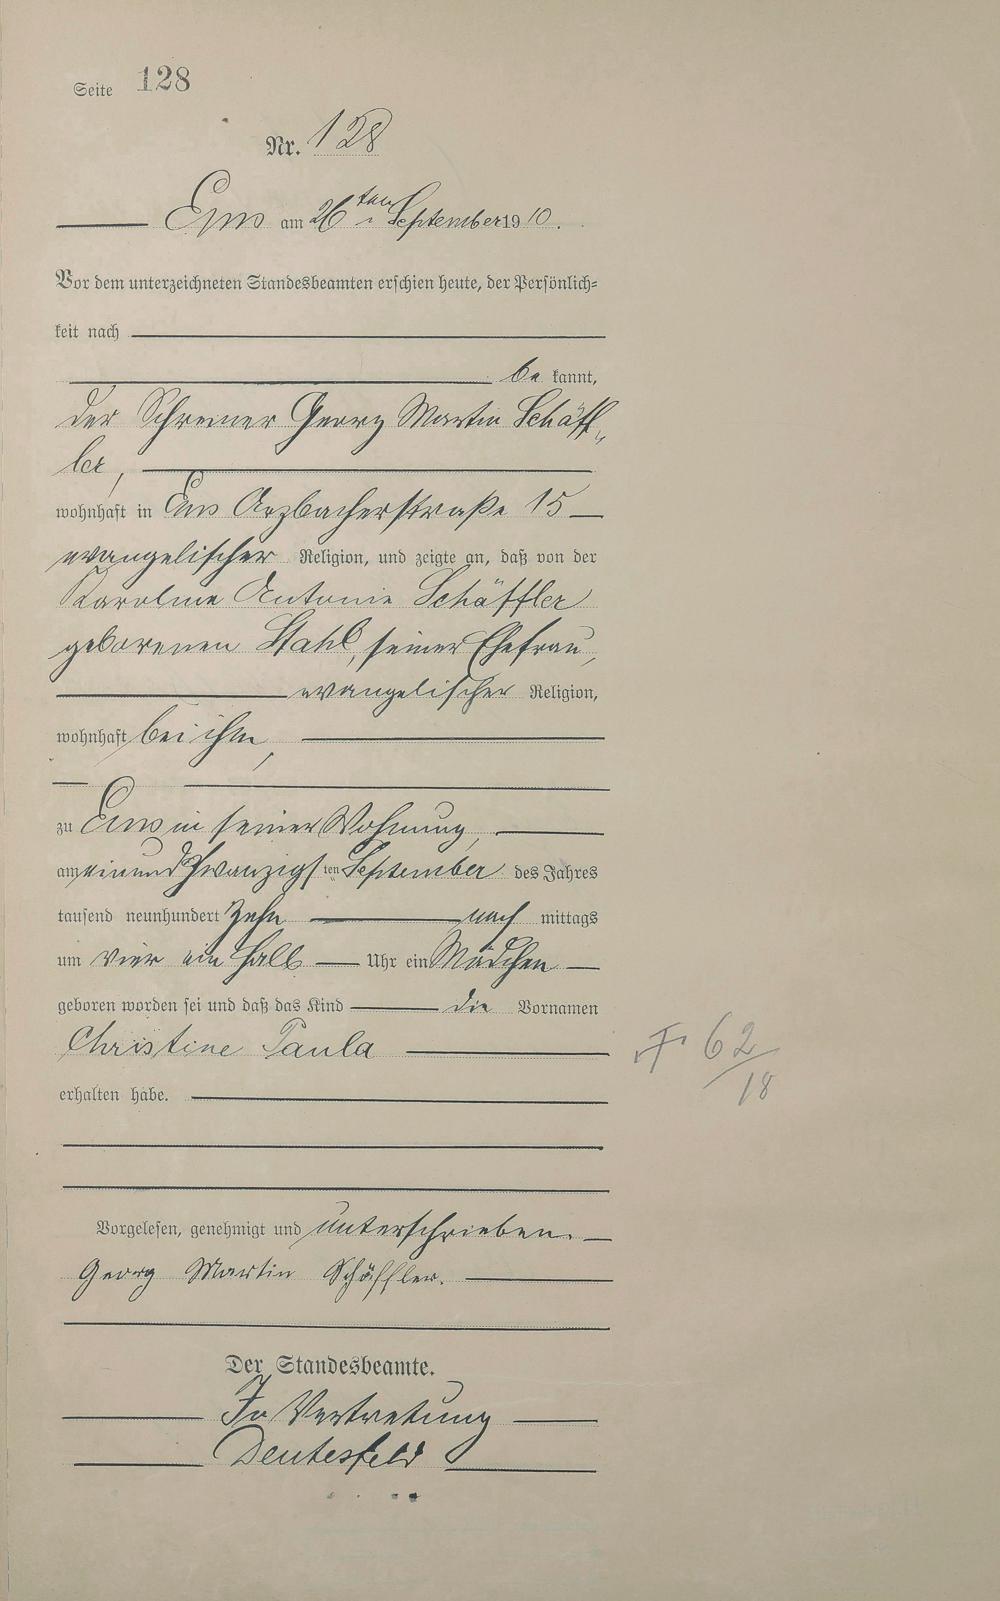 Seite 128
Nr. 128
Ems am 26ten September 1910.
Vor dem unterzeichneten Standesbeamten erschien heute, der Persönlich-
keit nach
be kannt,
der Schreiner Georg Martin Schäff-
ler,
wohnhaft in Ems Arzbacherstraße 15
evangelischer Religion, und zeigte an, daß von der
Karoline Antonie Schäffler
geborenen Stahl, seiner Ehefrau,
evangelischer Religion,
wohnhaft bei ihm,
zu Ems in seiner Wohnung,
am einundzwanzigsten September des Jahres
tausend neunhundert zehn nach mittags
um vier ein halb Uhr ein Mädchen
geboren worden sei und daß das Kind die Vornamen
Christine Paula
F 62/18
erhalten habe.
Vorgelesen, genehmigt und unterschrieben.
Georg Martin Schäffler.
Der Standesbeamte.
In Vertretung